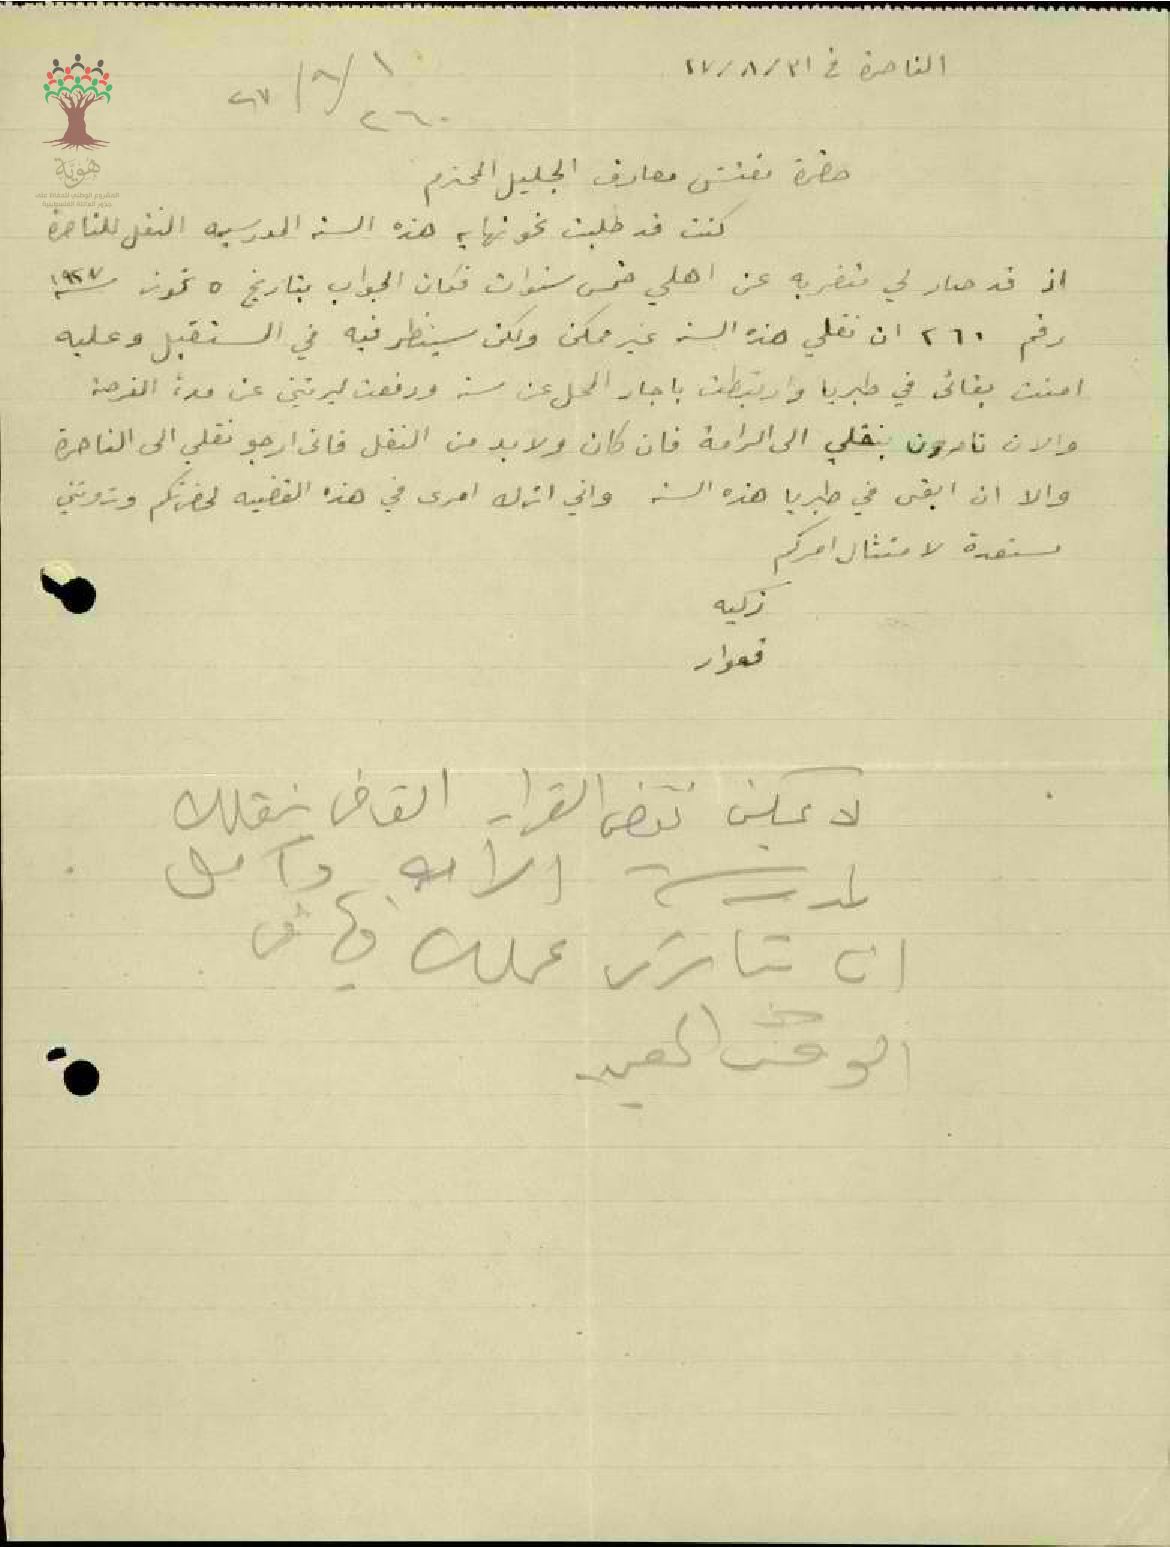 الناصرة في ٣١/٨/٢٧
١/٩/٢٧
٢٦٠
هوية
المشروع الوطني للحفاظ على
جذور العائلة الفلسطينية
حضرة مفتش معارف الجليل المحترم
كنت قد طلبت نحو نهاية هذه السنه المدرسيه النقل للناصرة
اذ قد صار لي متغربه عن اهلي خمس سنوات فكان الجواب بتاريخ ٥ تموز سنة ١٩٢٧
رقم ٢٦٠ ان نقلي هذه السنه غير ممكن ولكن سينظر فيه في المستقبل وعليه
امنت بقائي في طبريا وارتبطت باجار المحل عن سنه ودفعت ليرتين عن مدة الفرصه
والان تامرون بنقلي الى الرامة فان كان ولا بد من النقل فاني ارجو نقلي الى الناصرة
والا ان ابقى في طبريا هذه السنه واني اترك امري في هذه القضيه لحضرتكم وترونني
مستعدة لامتثال امركم
زكيه
قعوار
لا يمكن نقض القرار القاضي بنقلك
لمدرسة الرامه وآمل
ان تباشري عملك فيها في
الوقت المعين